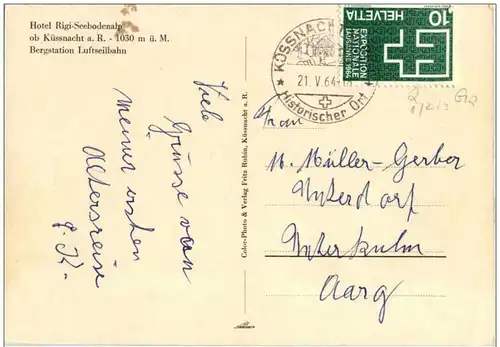 Hotel Rigi-Seebodenalp
ob Küssnacht a. R. - 1030 m ü. M.
Bergstation Luftseilbahn
Viele
Grüsse von
meiner ersten
Altersreise
J. K.
Color-Photo & Verlag Fritz Rubin, Küssnacht a. R.
KÜSSNACHT
21. V. 64
Historischer Ort
HELVETIA 10
EXPOSITION
NATIONALE
LAUSANNE 1964
Frau
M. Müller-Gerber
Unterdorf
Unterkulm
Aarg